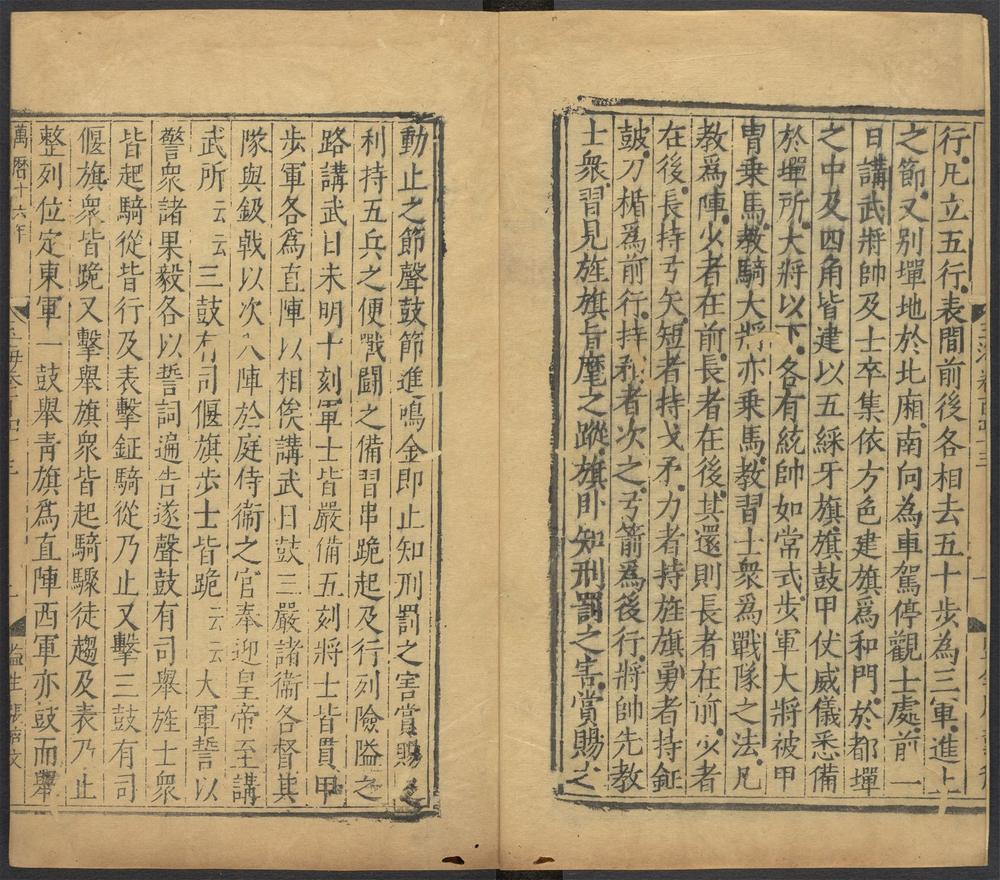 行凡立五行表間前後各相去五十步為三軍進止
之節又别墠地於北廂南向為車駕停觀士處前一
日講武將帥及士卒集依方色建旗爲和門於都墠
之中及四角皆建以五綵牙旗旗鼓甲仗威儀悉備
於墠所大將以下各有統帥如常式步軍大將被甲
胄乗馬教騎大將亦乗馬教習士衆爲戰隊之法凡
教爲陣少者在前長者在後其還則長者在前少者
在後長持弓矢短者持戈矛力者持旌旗勇者持鉦
鼓刀楯為前行持矟者次之弓箭為後行將帥先教
士衆習見旌旗指麾之蹤旗卧知刑罰之害賞賜之
動止之節聲鼓節進鳴金即止知刑罰之害賞賜之
利持五兵之便戰鬪之備習串跪起及行列險隘之
路講武日未明十刻軍士皆嚴備五刻將士皆貫甲
步軍各爲直陣以相俟講武日鼓三嚴諸衞各督其
隊與鈒戟以次入陣於庭侍衞之官奉迎皇帝至講
武所云云三鼓有司偃旗步士皆跪云云大軍誓以
警衆諸果毅各以誓詞遍告遂聲鼓有司舉旌士衆
皆起騎從皆行及表擊鉦騎從乃止又擊三鼓有司
偃旗衆皆跪又擊舉旗衆皆起騎驟徒趨及表乃止
整列位定東軍一鼓舉青旗爲直陣西軍亦鼓而舉
萬暦十六年